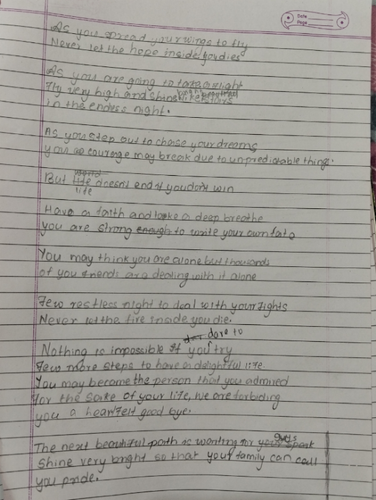 Date
Page
As you spread your wings to fly
Never let the hope inside you dies
As you are going to take a flight
Fly very high and shine like stars
in the endess night.
As you step out to chase your dreams
your courage may break due to unpredictable things.
But life doesn't end if you don't win
life
Have a faith and take a deep breathe
you are strong enough to write your own fate
You may think you are alone but thousands
of your friends are dealing with it alone
Few restless night to deal with your fights
Never let the fire inside you die.
dare to
Nothing is impossible if you try
Few more steps to have a delightful life
You may become the person that you admired
For the sake of your life, we are forbiding
you a heartfelt good bye.
The next beautiful path is waiting for your
shine very bright so that your family can call
you pride.